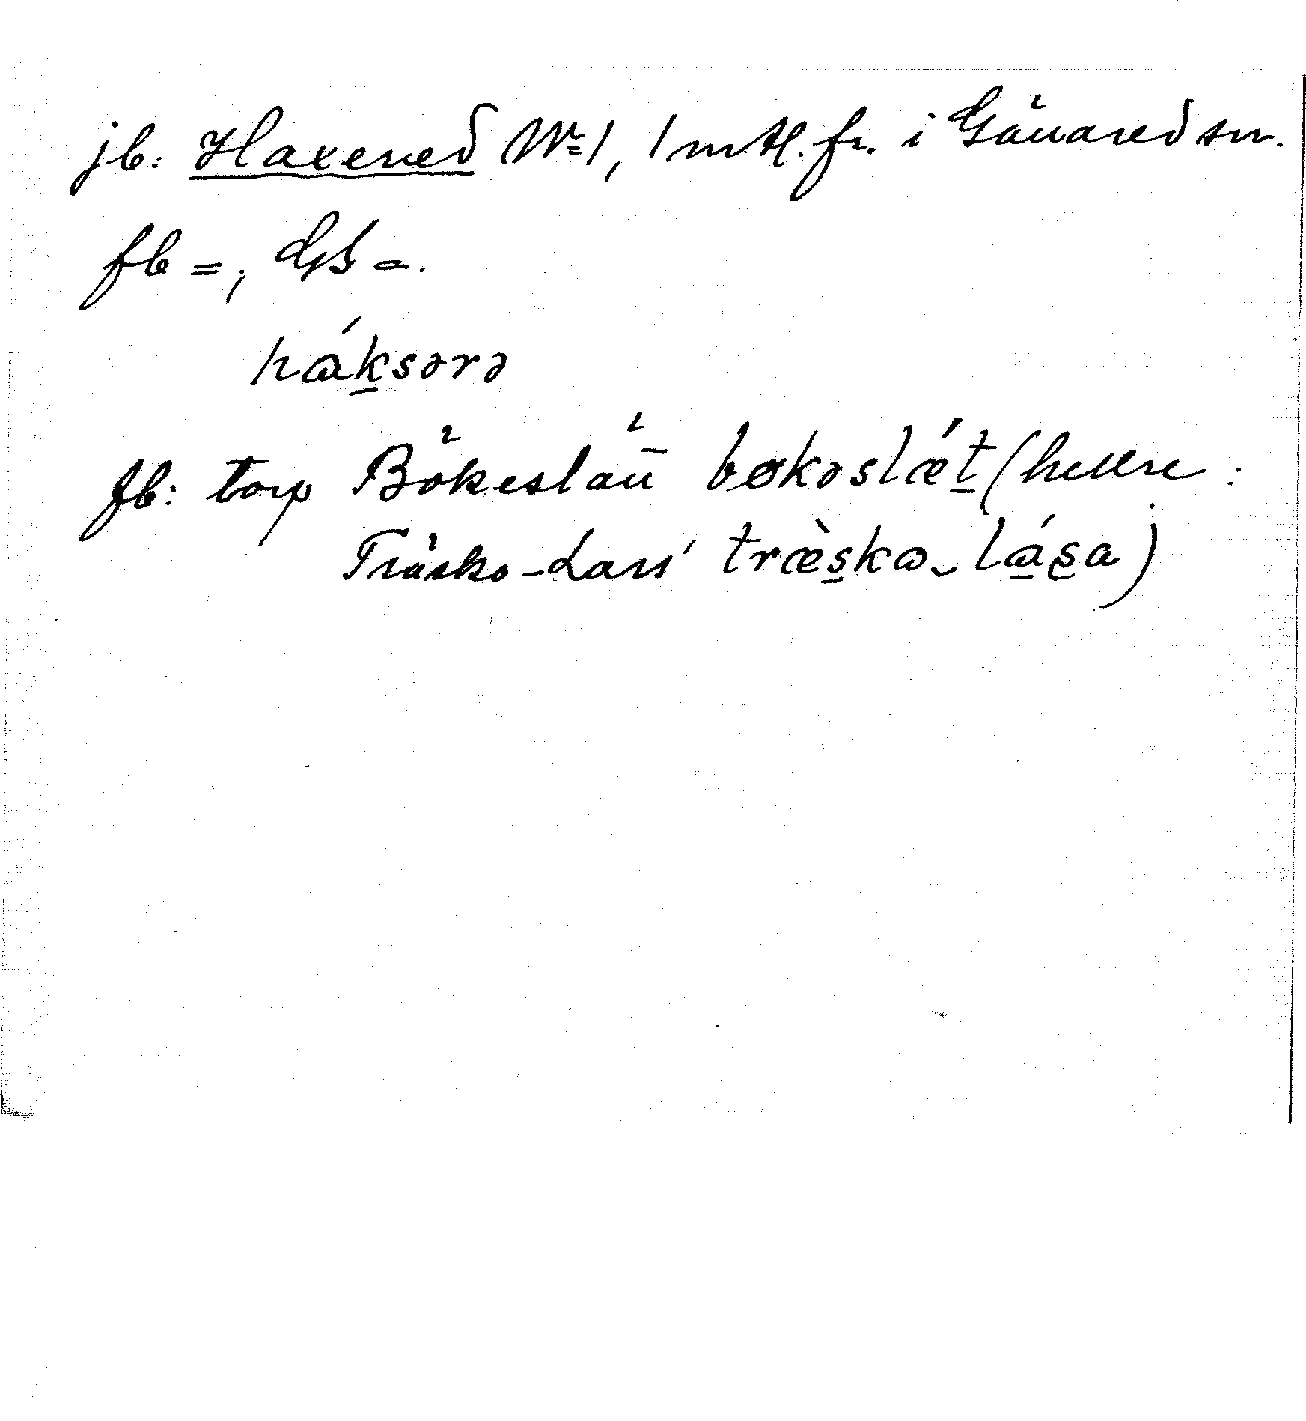 jb: Haxered N=1, 1 mtl. fr. i Gällared sn.
fb =, GS =.
háksərə
fb: torp Bökeslätt bøkəslǽt (hellre:
Träsko-Lars' træ̀ska-lása)